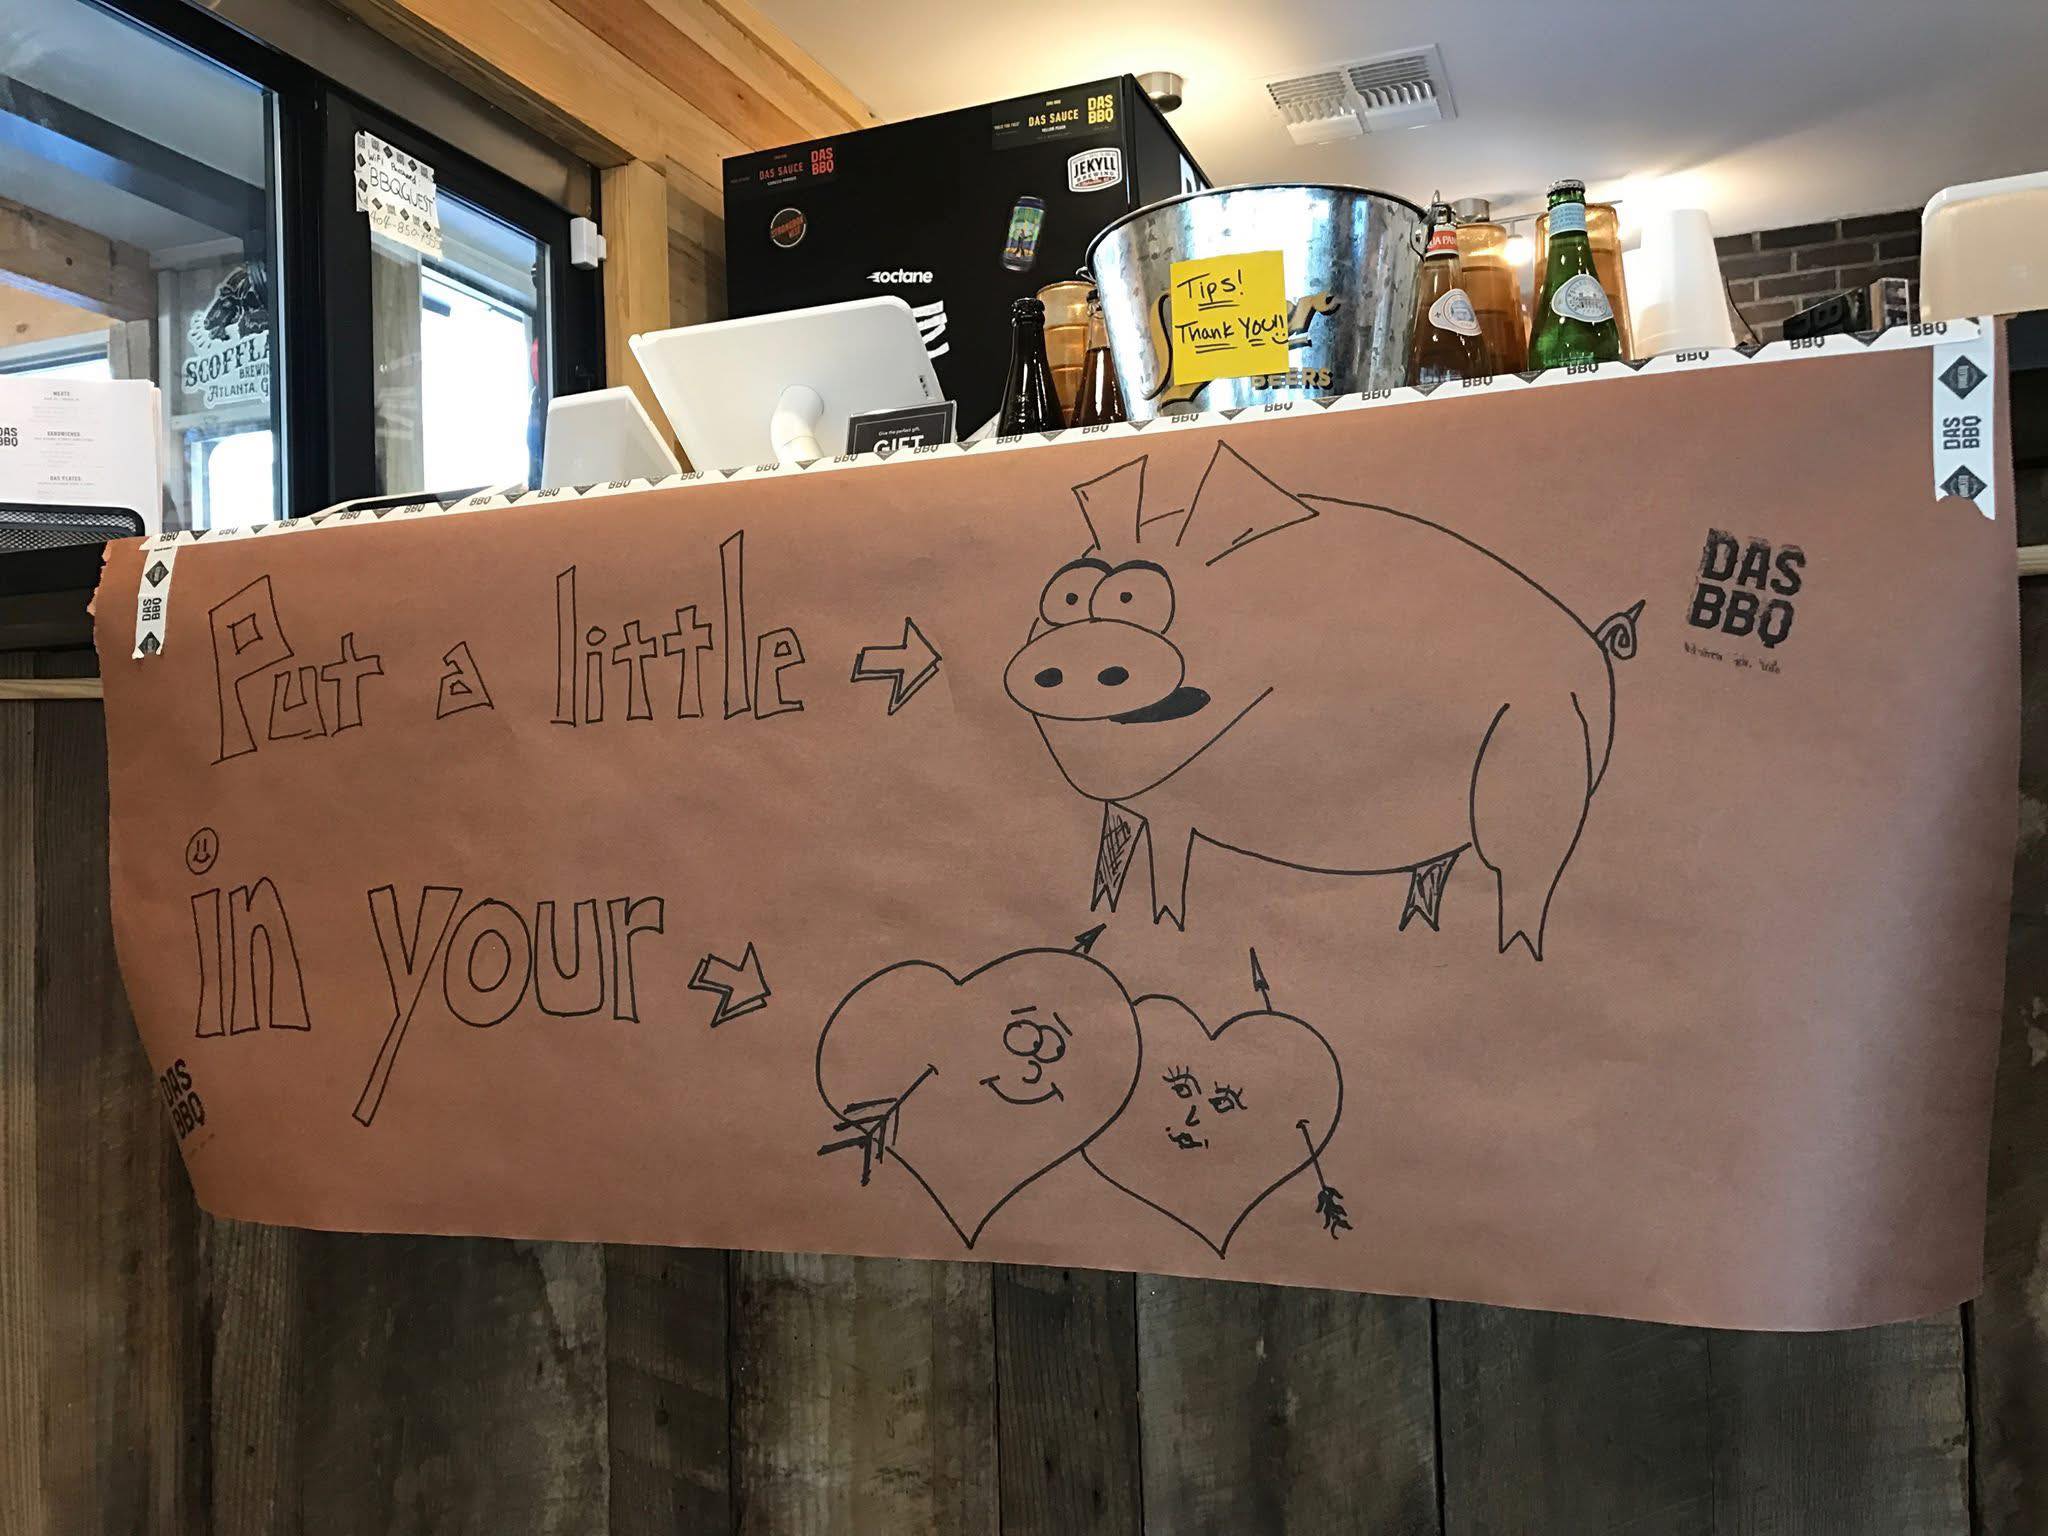 DAS SAUCE
DAS
BBQ
DAS SAUCE
YELLOW PEACH
DAS
BBQ
JEKYLL
BREWING
octane
WiFi Password
BBQGUEST
SCOFFLA
BREWIN
ATLANTA, G
MEATS
SANDWICHES
DAS PLATES
DAS
BBQ
Tips!
Thank You!!
BEERS
Give the perfect gift.
GIFT
BBQ BBQ BBQ BBQ BBQ BBQ BBQ BBQ BBQ BBQ BBQ BBQ BBQ BBQ BBQ BBQ
DAS
BBQ
DAS
BBQ
Put a little
DAS
BBQ
in your
DAS
BBQ